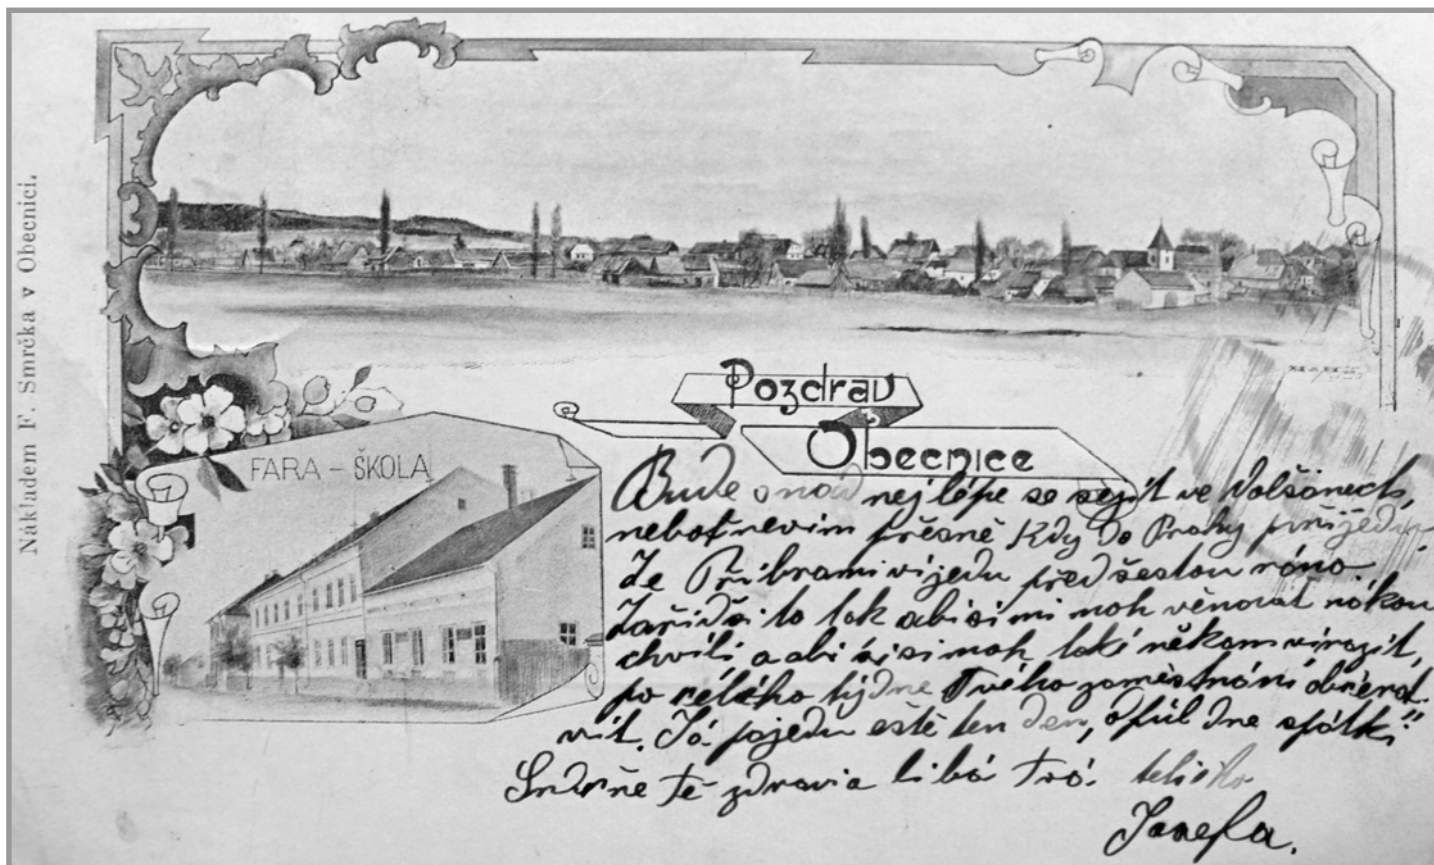 Nákladem F. Smrčka v Obecnici.
Pozdrav
z
Obecnice
FARA - ŠKOLA
Bude snad nejlépe se sejít ve Volšanech,
neboť nevim přesně kdy do Prahy přijedu.
Ze Příbrami vijedu před šestou ráno.
Zařiď si to tak abi si mi moh věnovat nákou
chvíli a abi si moh také někam virazit,
po célého týdne Tvého zaměstnání občerst-
vit. Já pojedu eště ten den, odpůl dne spátki"
Srdečně tě zdravia líbá tvá
Josefa.